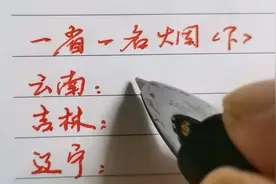 一省一名烟〈下〉
云南：
吉林：
辽宁：